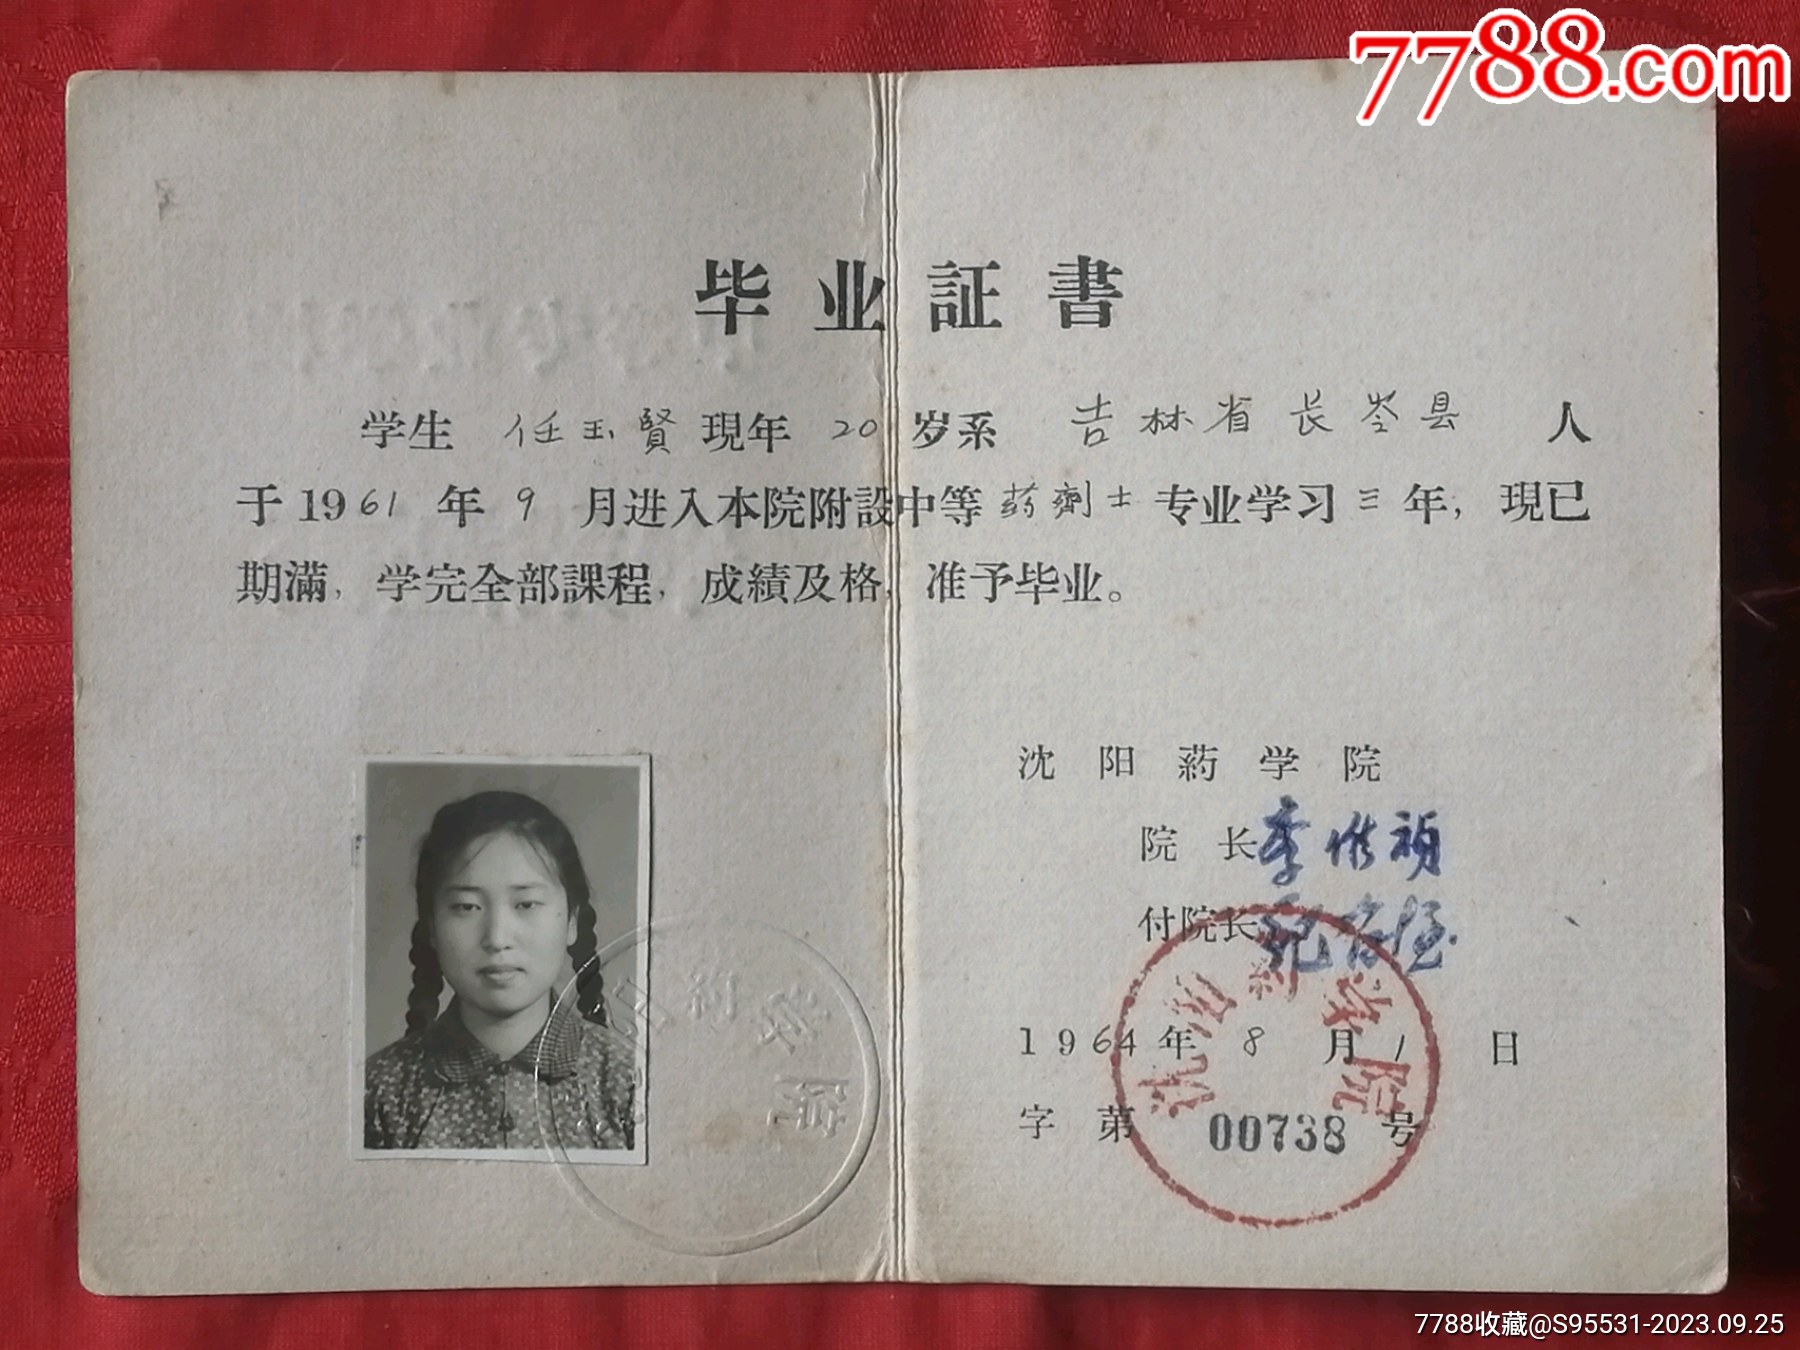 7788.com
毕业証書
学生 任玉賢 現年 20 岁系 吉林省长岑县 人
于1961年9月进入本院附設中等葯劑士专业学习三年，現已
期滿，学完全部課程，成績及格，准予毕业。
沈阳葯学院
院长 李維祯
付院长
1964年8月1日
字第00738号
沈阳葯学院
沈阳葯学院
7788收藏@S95531-2023.09.25